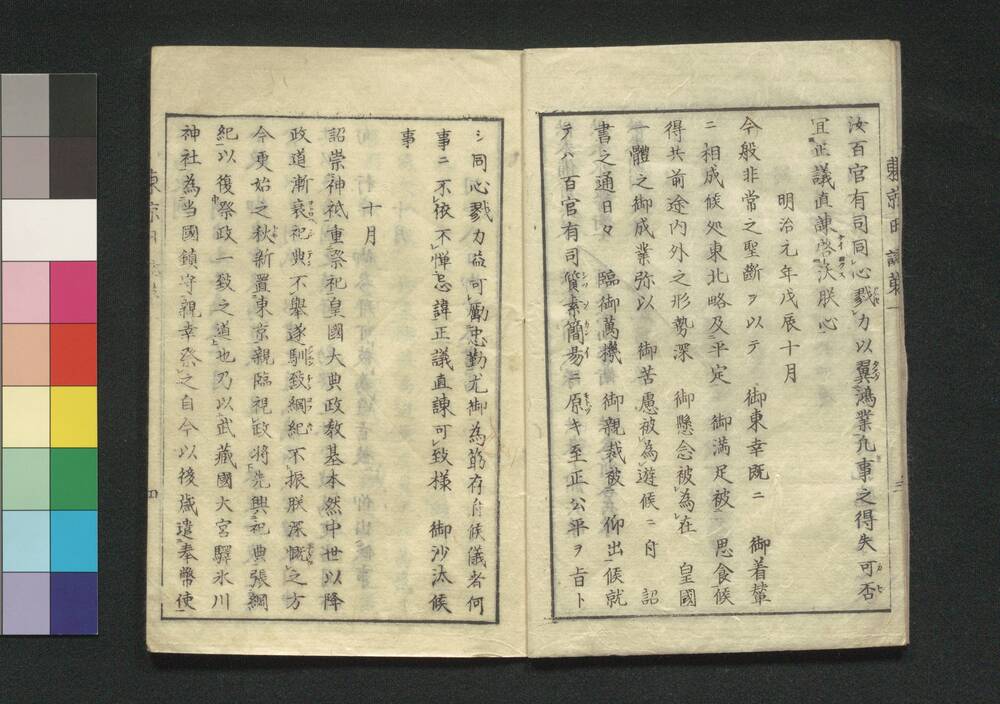 汝百官有司同心戮力以翼鴻業凡事之得失可否
宜正議直諌啓沃朕心
明治元年戊辰十月
今般非常之聖斷ヲ以テ 御東幸既ニ 御着輦
ニ相成候処東北略及平定 御満足被 思食候
得共前途内外之形勢深 御懸念被為在 皇國
一體之御成業弥以 御苦慮被為遊候ニ付 詔
書之通日々 臨御萬機 御親裁被 仰出候就
テハ百官有司質素簡易ニ原キ至正公平ヲ旨ト
三
シ同心戮力益可勵忠勤尤御為筋存付候儀者何
事ニ不依不憚忌諱正議直諌可致様 御沙汰候
事
十月
詔崇神祇重祭祀皇國大典政教基本然中世以降
政道漸衰祀典不舉遂馴致綱紀不振朕深慨之方
今更始之秋新置東京親臨視政将先興祀典張綱
紀以復祭政一致之道也乃以武蔵國大宮驛氷川
神社為当國鎮守親幸祭之自今以後歳遣奉幣使
四